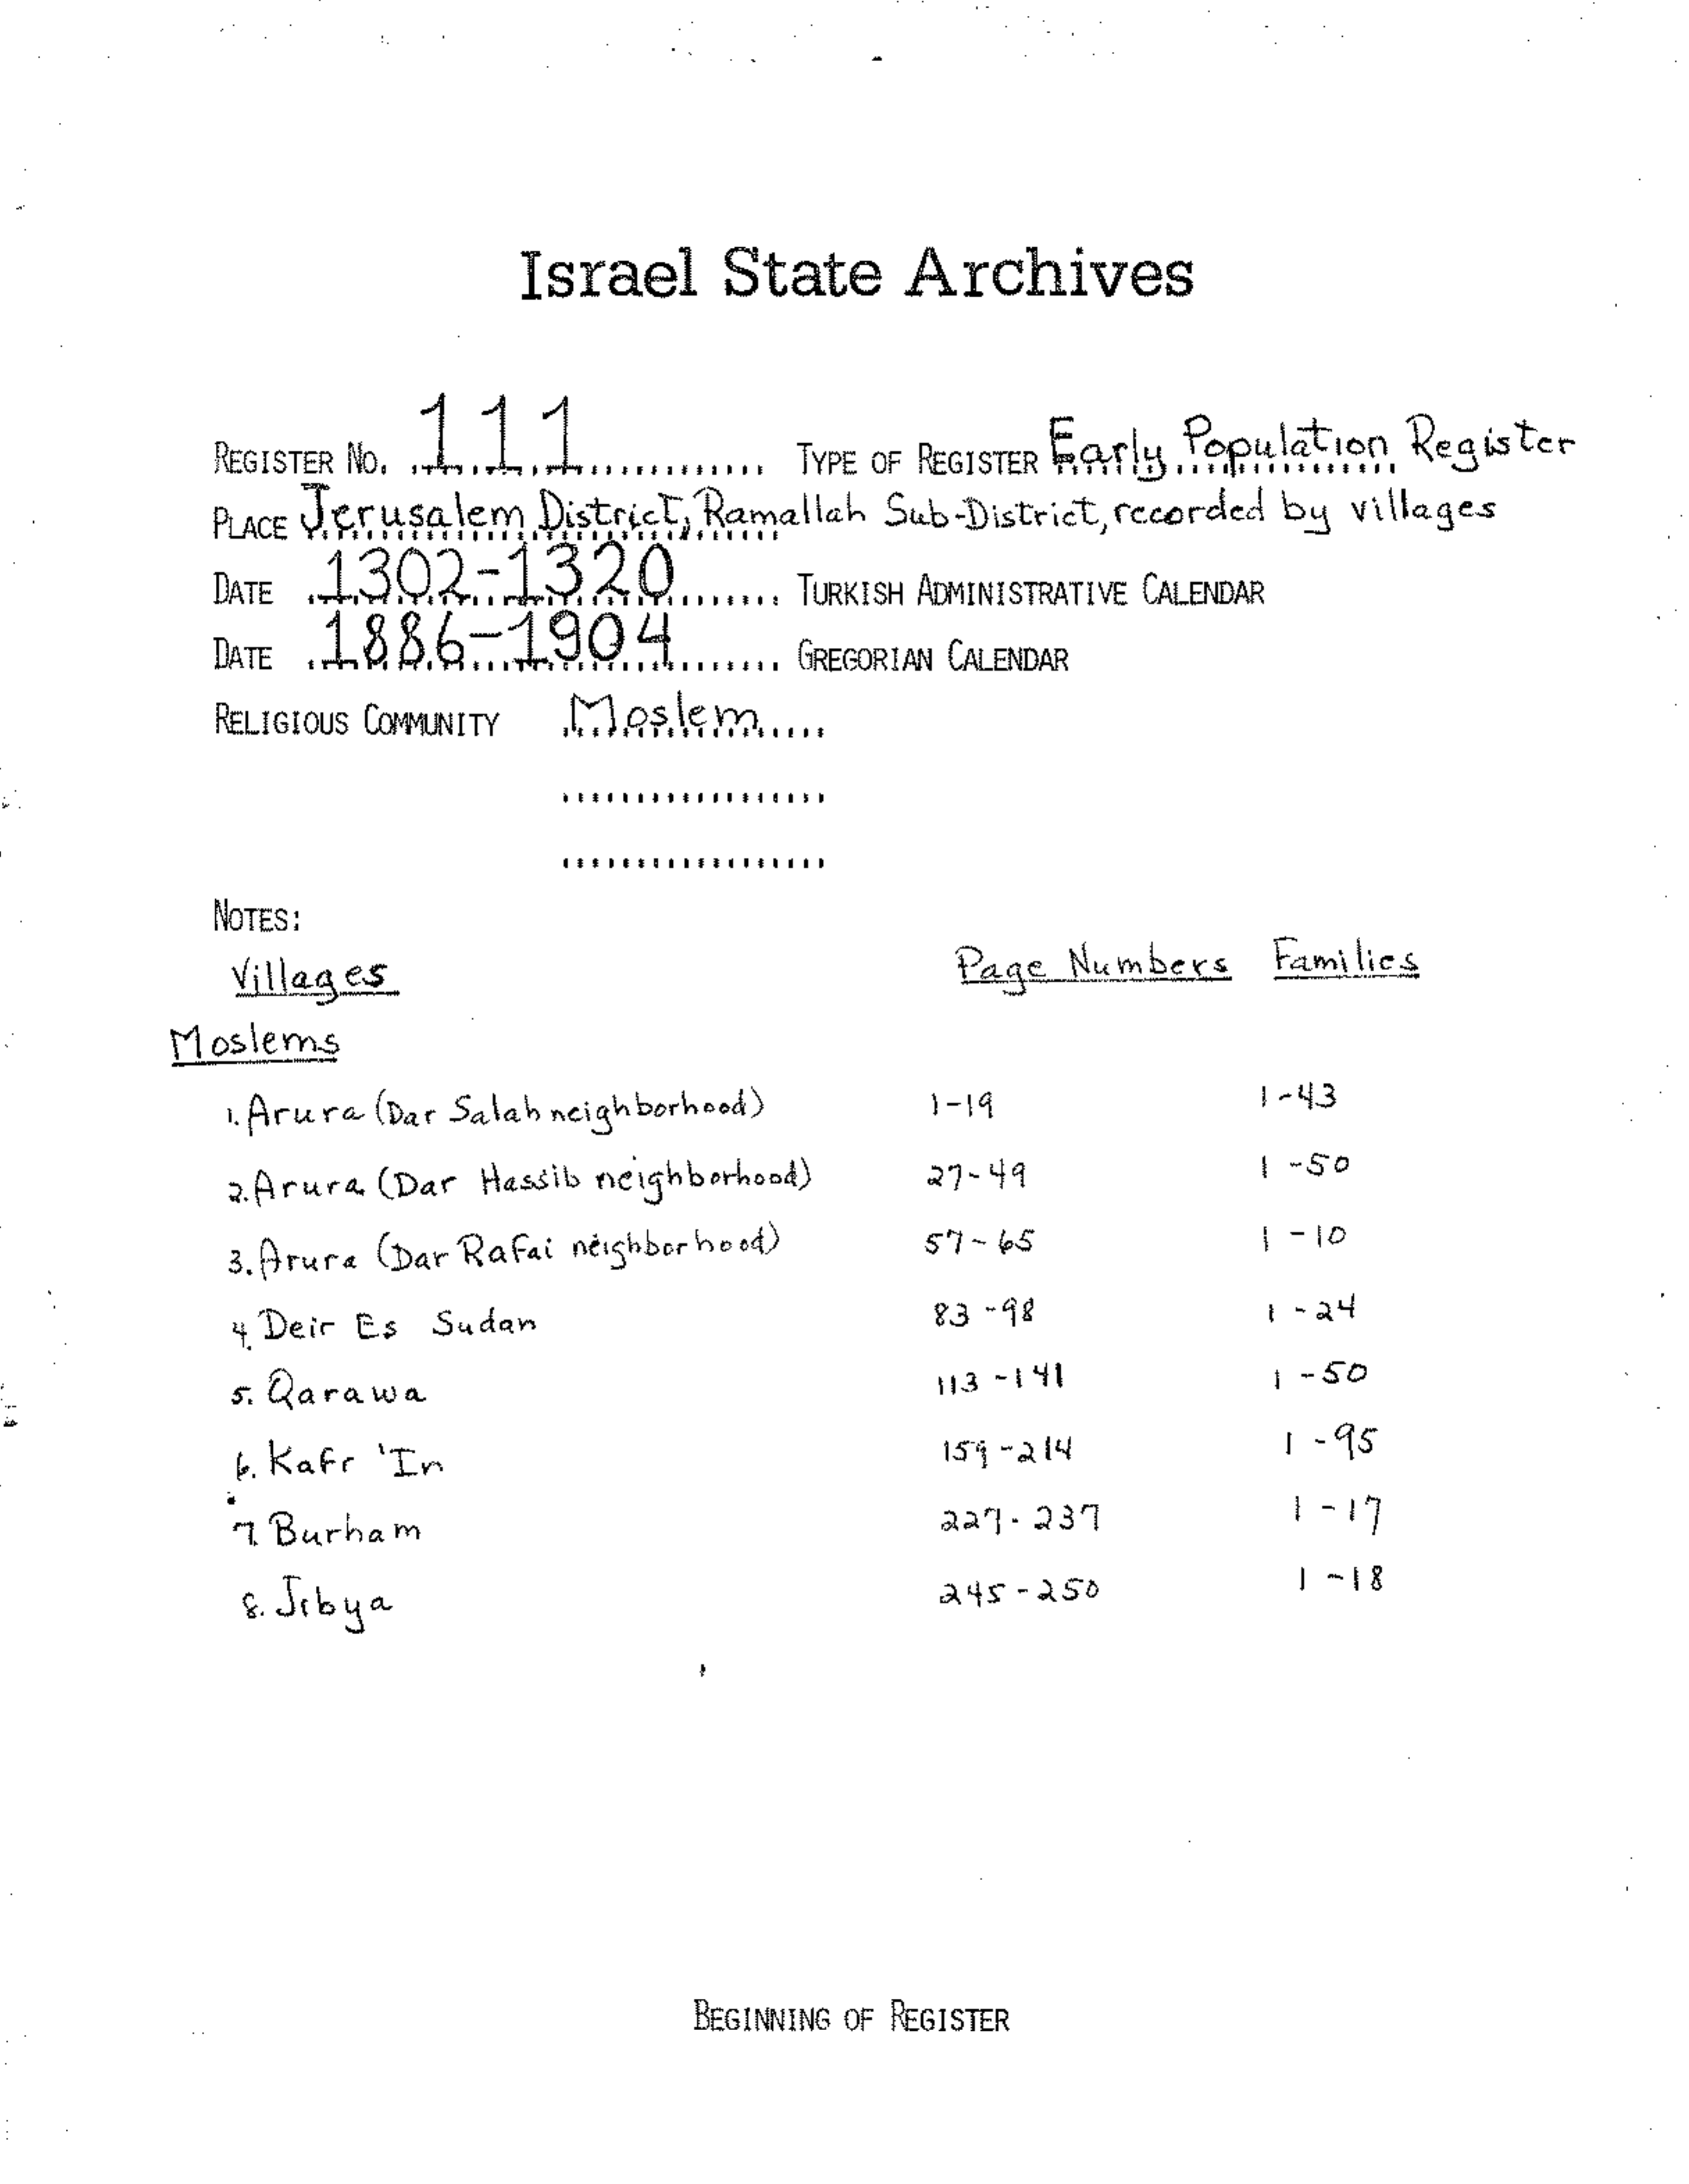 Israel State Archives
REGISTER NO. 111 TYPE OF REGISTER Early Population Register
PLACE Jerusalem District, Ramallah Sub-District, recorded by villages
DATE 1302-1320 TURKISH ADMINISTRATIVE CALENDAR
DATE 1886-1904 GREGORIAN CALENDAR
RELIGIOUS COMMUNITY Moslem
NOTES:
Villages Page Numbers Families
Moslems
1. Arura (Dar Salah neighborhood) 1-19 1-43
2. Arura (Dar Hassib neighborhood) 27-49 1-50
3. Arura (Dar Rafai neighborhood) 57-65 1-10
4. Deir Es Sudan 83-98 1-24
5. Qarawa 113-141 1-50
6. Kafr 'In 159-214 1-95
7. Burham 227-237 1-17
8. Jibya 245-250 1-18
BEGINNING OF REGISTER